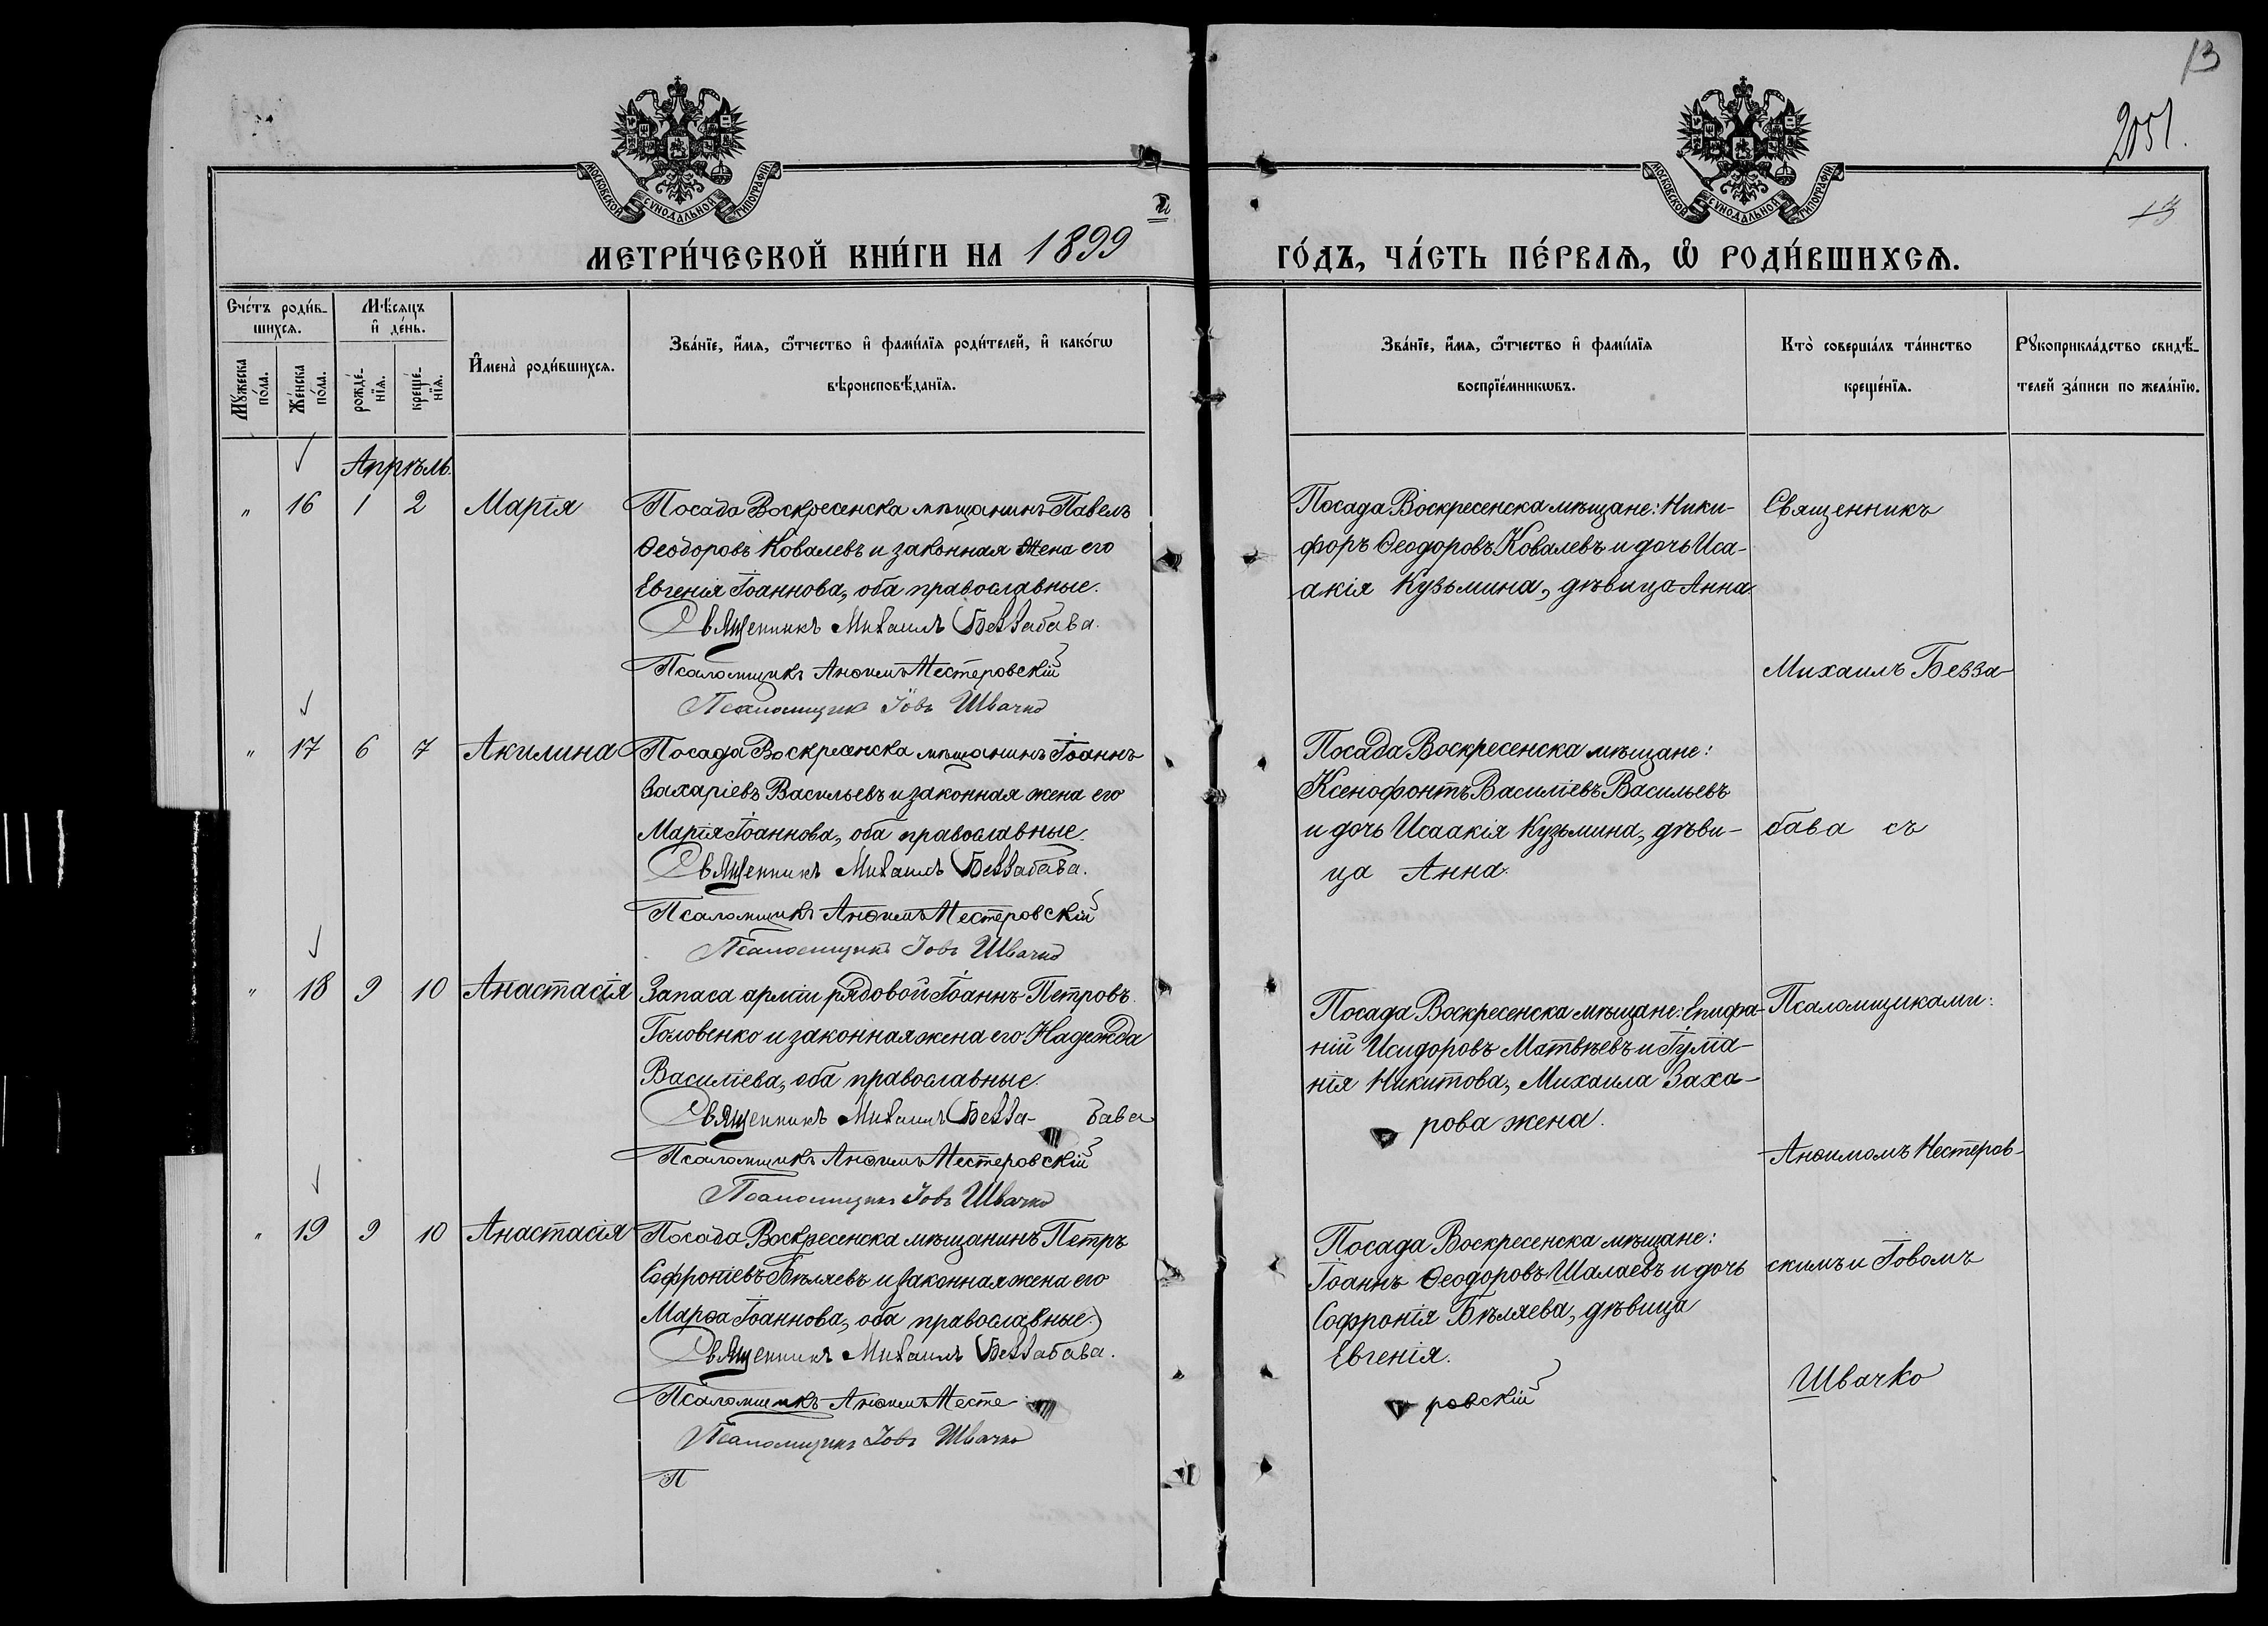 13
2051.
13
МОСКОВСКОЙ СѴНОДАЛЬНОЙ ТИПОГРАФІИ
МОСКОВСКОЙ СѴНОДАЛЬНОЙ ТИПОГРАФІИ
МЕТРИ́ЧЕСКОЙ КНИ́ГИ НА 1899 й ГО́ДЪ, ЧА́СТЬ ПЕ́РВАѦ, Ѽ РОДИ́ВШИХСѦ.
Сче́тъ роди́в-
шихсѧ.
Мꙋжеска
по́ла.
Же́нска
по́ла.
Мѣ́сѧцъ
и҆ де́нь.
рожде́-
нїѧ.
креще́-
нїѧ.
И҆мена̀ роди́вшихсѧ.
Зва́нїе, и҆́мѧ, ѻ҆́тчество и҆ фами́лїѧ роди́телей, и҆ како́гѡ
вѣроисповѣ́данїѧ.
Зва́нїе, и҆́мѧ, ѻ҆́тчество и҆ фами́лїѧ
воспрїе́мникѡвъ.
Кто̀ соверша́лъ та́инство
креще́нїѧ.
Рꙋкоприкла́дство свидѣ́-
телей за́писи по жела́нїю.
Апрѣль.
" 16 1 2 Марія
Посада Воскресенска мѣщанинъ Павелъ
Ѳеодоровъ Ковалевъ и законная жена его
Евгенія Іоаннова, оба православные.
Священникъ Михаилъ Беззабава.
Псаломщикъ Анѳимъ Нестеровскій
Псаломщикъ Іовъ Швачко
Посада Воскресенска мѣщане: Ники-
форъ Ѳеодоровъ Ковалевъ и дочь Иса-
акія Кузьмина, дѣвица Анна
Священникъ
Михаилъ Безза-
" 17 6 7 Акилина
Посада Воскресенска мѣщанинъ Іоаннъ
Захаріевъ Васильевъ и законная жена его
Марія Іоаннова, оба православные.
Священникъ Михаилъ Беззабава.
Псаломщикъ Анѳимъ Нестеровскій
Псаломщикъ Іовъ Швачко
Посада Воскресенска мѣщане:
Ксенофонтъ Василіевъ Васильевъ
и дочь Исаакія Кузьмина, дѣви-
ца Анна.
бава съ
" 18 9 10 Анастасія
Запаса арміи рядовой Іоаннъ Петровъ
Головенко и законная жена его Надежда
Василіева, оба православные.
Священникъ Михаилъ Безза- бава
Псаломщикъ Анѳимъ Нестеровскій
Псаломщикъ Іовъ Швачко
Посада Воскресенска мѣщане: Епифа-
ній Исидоровъ Матвѣевъ и Іуліа-
нія Никитова, Михаила Заха-
рова жена.
Псаломщиками:
Анѳимомъ Нестеров-
" 19 9 10 Анастасія
Посада Воскресенска мѣщанинъ Петръ
Софроніевъ Бѣляевъ и законная жена его
Марѳа Іоаннова, оба православные.
Священникъ Михаилъ Беззабава.
Псаломщикъ Анѳимъ Несте-
Псаломщикъ Іовъ Швачко
П
Посада Воскресенска мѣщане:
Іоаннъ Ѳеодоровъ Шалаевъ и дочь
Софронія Бѣляева, дѣвица
Евгенія.
ровскій
скимъ и Іовомъ
Швачко